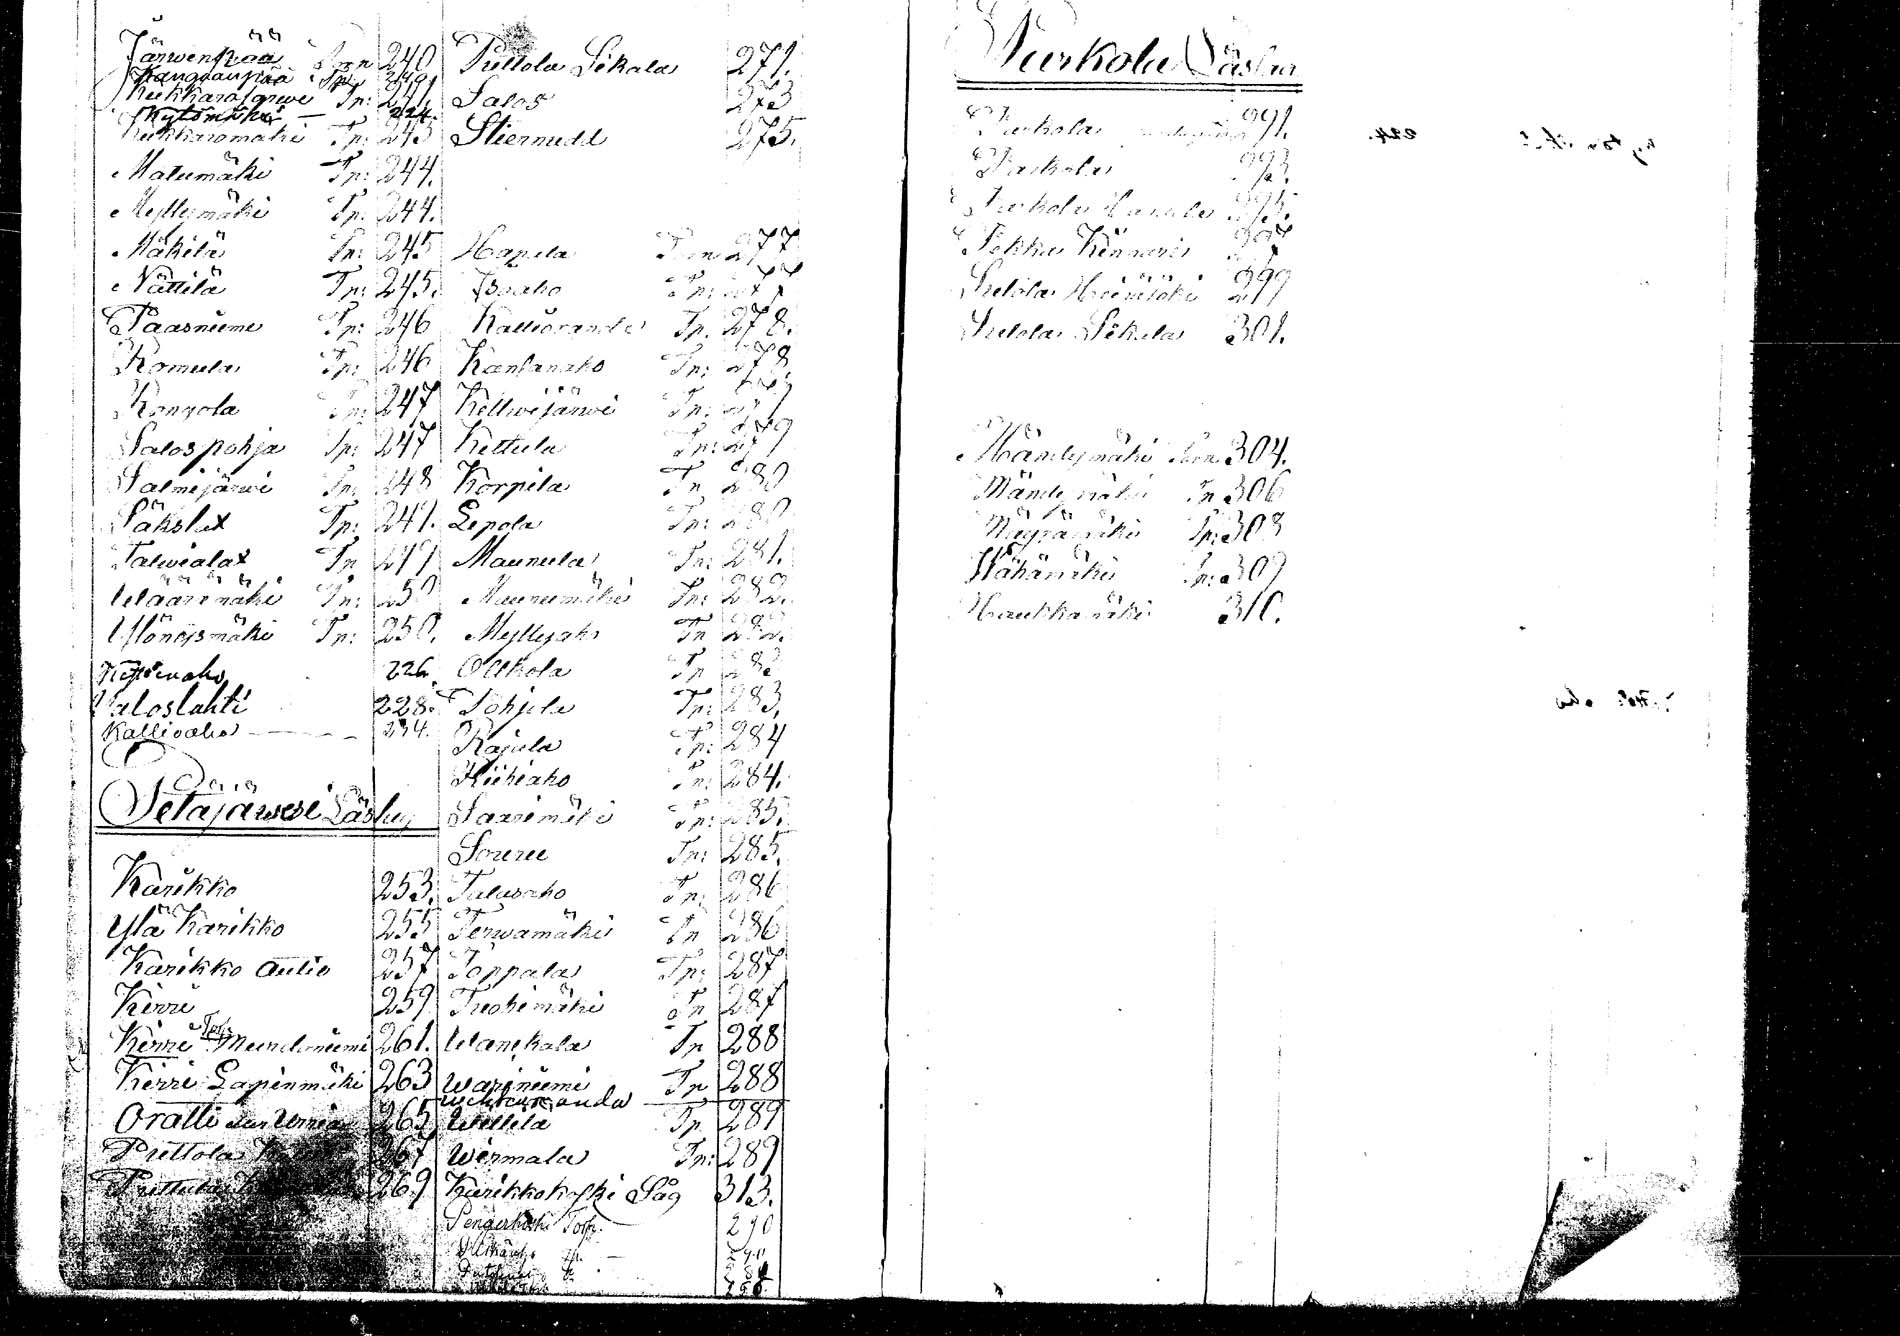 Järwenpää Torn 240
Kangaanpää Tp: 240
Kukkarojärwi Tp: 241.
Kytömäki — 224.
Kukkaromäki Tp: 243
Matumäki Tp: 244.
Myllymäki Tp: 244.
Mäkelä Tp: 245
Nättilä Tp: 245.
Paasniemi Tp: 246
Romula Tp: 246
Rongola Tp: 247
Salospohja Tp: 247
Salmijärwi Tp: 248
Säkslax Tp: 249.
Talwialax Tp 249
Wäärämäki Tp: 250
Ylönejsmäki Tp: 250.
226.
Waloslahti 228.
Kallioaho 234.
Petäjäwesi Läskeri
Karikko 253.
Ylä Karikko 255
Karikko Autio 257
Kirri 259
Kirri Torp: Mundoniemi 261.
Kirri Lapinmäki 263
Oratti 265
Puttola 267
Puttola 269
Puttola Sikala 271.
Salos 273
Stiernudd 275.
Hapila Torn 277
Isoaho Tp: 277
Kallioranda Tp. 278.
Kanfanaho Tp: 278.
Keltwijärwi Tp: 279
Kettula Tp: 279
Korpila Tp 280
Lepola Tp: 280
Maunula Tp: 281.
Maunumäki Tp: 282.
Myllyaho Tp 282.
Olkkola Tp 283
Pohjola Tp: 283.
Rajula Tp: 284
Riihiaho Tp: 284.
Saarimäki Tp: 285.
Souru Tp: 285.
Talasaho Tp: 286
Terwamäki Tp 286
Toppala Tp: 287
Tuohimäki Tp 287
Wanekala Tp 288
Warjniemi Tp 288
Wellilä Tp 289
Wirmala Tp: 289
Karikkokoski Såg 313.
Pengerkoski Torp. 290
Kurkola Läskeri
Kurkola 291.
Kurkola 293.
Kurkola Hannula 295.
Pekka Kinnaris 297
Sutola Heinijoki 299
Sutola Sikala 301.
Mändymäki Torn 304.
Mändymäki Tp 306
Mägrämäki Tp: 308
Wähämäki Tp: 309
Haukkamäki 310.